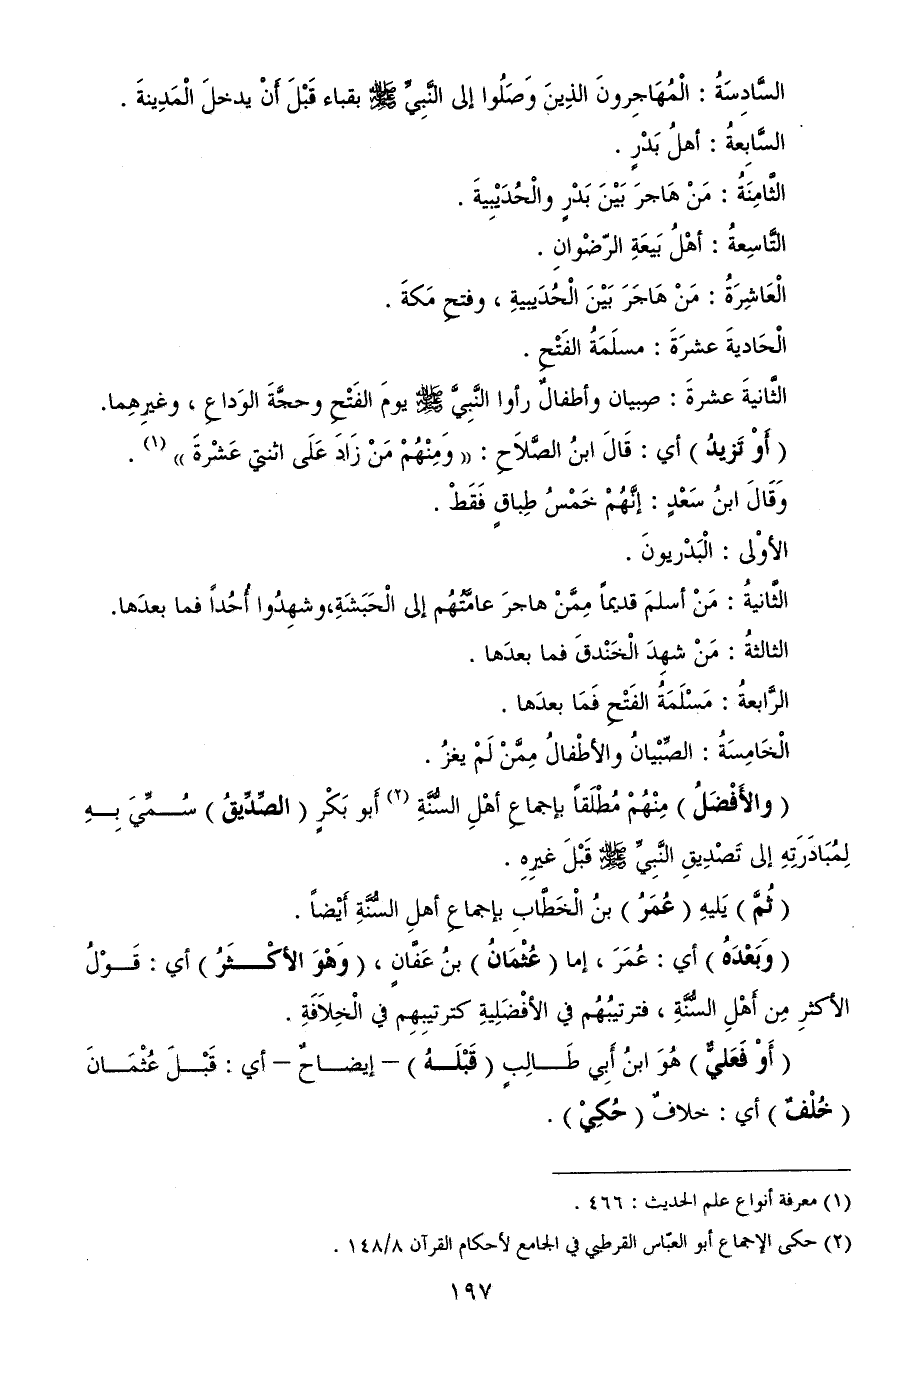 السَّادِسَةُ : الْمُهَاجِرونَ الذِينَ وَصَلُوا إلى النَّبِيِّ ﷺ بقباء قَبْلَ أَنْ يدخلَ الْمَدِينةَ .
السَّابِعةُ : أهلُ بَدْرٍ .
الثَّامِنَةُ : مَنْ هَاجرَ بَيْنَ بَدْرٍ والْحُدَيْبِيةَ .
التَّاسِعةُ : أهْلُ بَيعَةِ الرّضْوانِ .
الْعَاشِرَةُ : مَنْ هَاجَرَ بَيْنَ الْحُدَيبِيةِ ، وفتحِ مَكةَ .
الْحَاديةَ عشرَةَ : مسلَمَةُ الفَتْحِ .
الثَّانيةَ عشرةَ : صِبيان وأطفالٌ رأوا النَّبِيَّ ﷺ يومَ الفَتْحِ وحجَّةَ الوَداعِ ، وغيرِهِما.
( أَوْ تَزِيدُ ) أي : قَالَ ابنُ الصَّلاَحِ : « وَمِنْهُمْ مَنْ زَادَ عَلَى اثنتي عَشْرةَ » (١) .
وَقَالَ ابنُ سَعْدٍ : إنَّهُمْ خَمْسُ طِباقٍ فَقَطْ .
الأوْلى : الْبَدْريونَ .
الثَّانيةُ : مَنْ أسلمَ قديماً مِمَّنْ هاجرَ عامَّتُهُم إلى الْحَبَشَةِ،وشهِدُوا أُحُداً فما بعدَها.
الثالثةُ : مَنْ شهِدَ الْخَنْدقَ فما بعدَها .
الرَّابعةُ : مَسْلَمَةُ الفَتْحِ فَمَا بعدَها .
الْخَامِسَةُ : الصِّبْيانُ والأطْفالُ مِمَّنْ لَمْ يغزُ .
( والأَفْضَلُ ) مِنْهُمْ مُطْلَقاً بإجماعِ أهْلِ السُّنَّةِ (٢) أبو بَكْرٍ ( الصِّدِّيقُ ) سُــمِّيَ بِــهِ
لِمُبَادَرَتِهِ إلى تَصْدِيقِ النَّبِيِّ ﷺ قَبْلَ غيرِهِ .
( ثُمَّ ) يَليهِ ( عُمَرُ ) بنُ الْخَطَّابِ بإجماعِ أهلِ السُّنَّةِ أَيْضاً .
( وَبَعْدَهُ ) أي : عُمَرَ ، إما ( عُثْمَانُ ) بنُ عَفَّانٍ ، ( وَهْوَ الأكْــثَرُ ) أي : قَــولُ
الأكثرِ مِن أَهْلِ السُّنَّةِ ، فترتيبُهُم في الأفْضَلِيةِ كترتيبِهِم في الْخِلاَفَةِ .
( أَوْ فَعَليٌّ ) هُوَ ابنُ أبي طَــالِبٍ ( قَبْلَــهُ ) – إيضــاحٌ – أي : قَبْــلَ عُثْمَــانَ
( خُلْفٌ ) أي : خلافٌ ( حُكِيْ ) .
(١) معرفة أنواع علم الحديث : ٤٦٦ .
(٢) حكى الإجماع أبو العبّاس القرطبي في الجامع لأحكام القرآن ١٤٨/٨ .
١٩٧